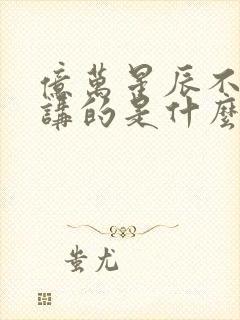 億萬星辰不
講的是什麼
蚩尤